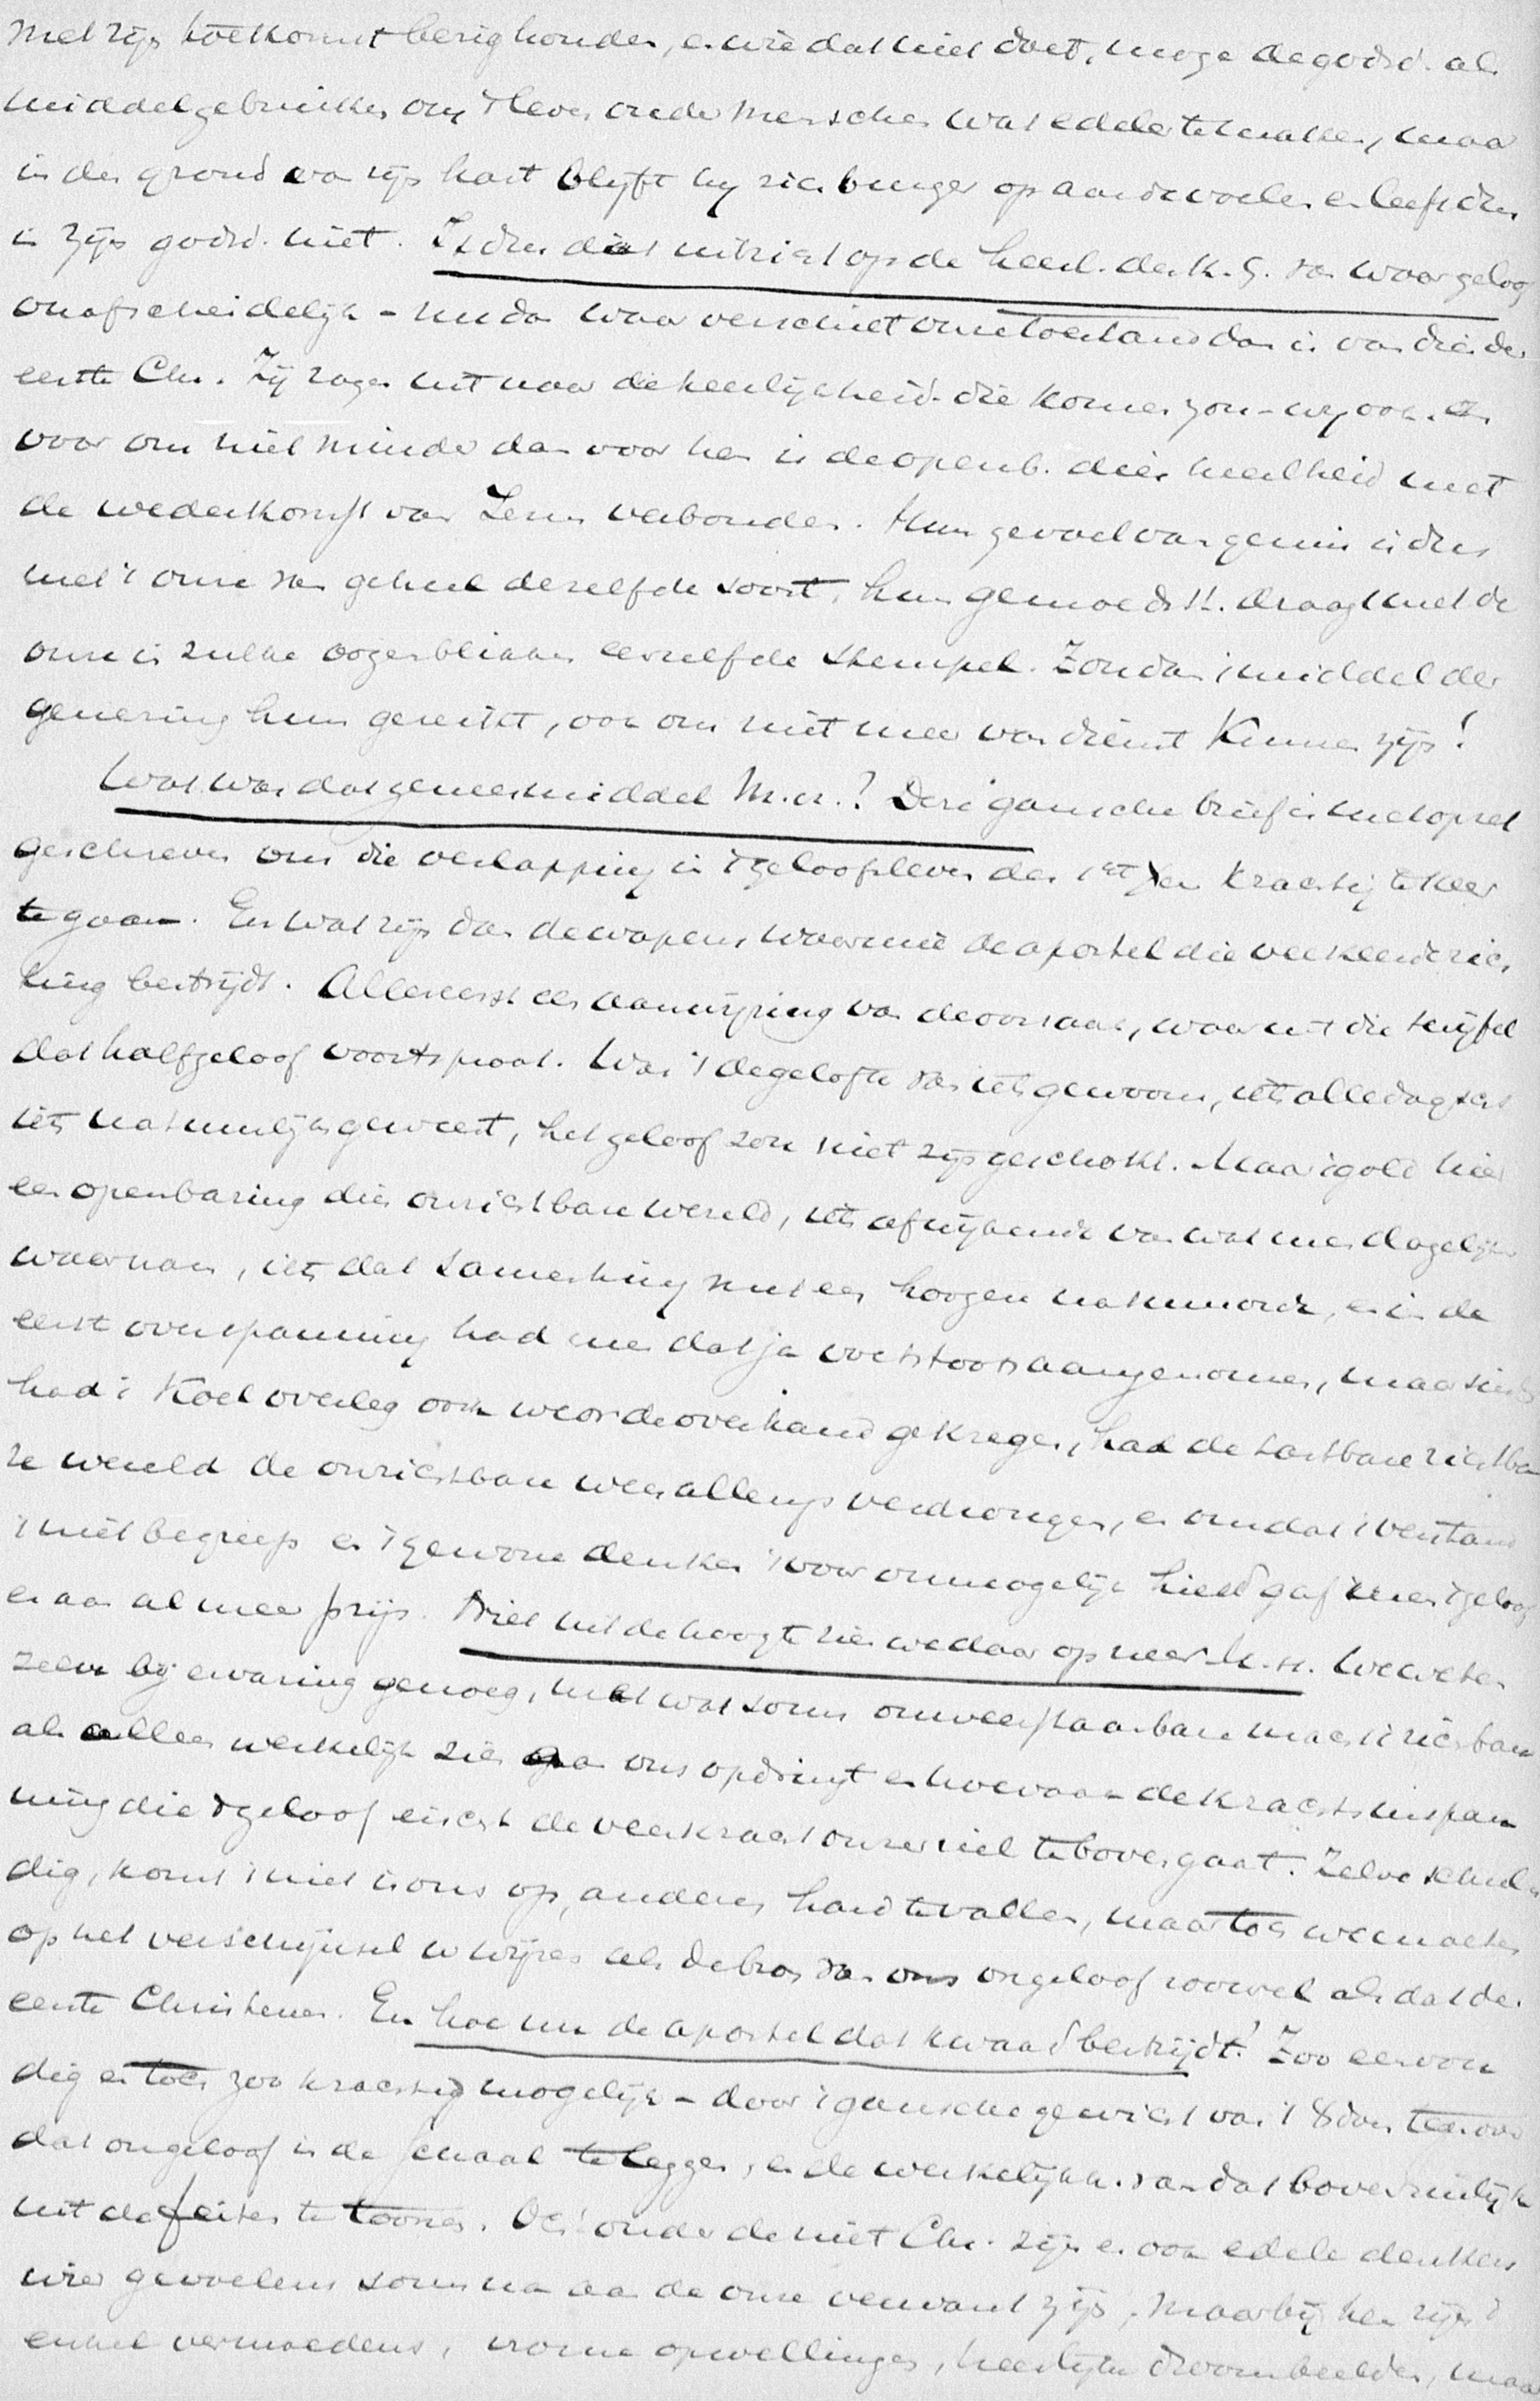 met zijn toekomst bezig houden, en wie dat niet doet, moge de godsd. als
middel gebruiken om 't leven onder menschen wat edeler te maken, maar
in den grond van zijn hart blijft hij zich burger op aarde voelen en leeft dus
in zijn godsd. niet. Is dus dat uitzicht op de heerl. des k. G. van waar geloof
onafscheidelijk - nu dan waar verschilt onze toestand dan in van die der
eerste Chr. Zij zagen uit naar die heerlijkheid die komen zou - wij ook. En
voor ons niet minder dan voor hen is de openb. dier heerlheid met
de wederkomst van Jezus verbonden. Hun gevoel van gemis is dus
met 't onze van geheel dezelfde soort, hun gemoedst. draagt met de
onze in zulke oogenblikken eenzelfde stempel. Zou dan 't middel der
genezing hun gereikt, ook ons niet meer van dienst kunnen zijn!
Wat was dat geneesmiddel M. H.? Deze gansche brief is met opzet
geschreven om die verslapping in 't geloofsleven der 1ste Chr. krachtig te keer
te gaan. En wat zijn dan de wapens waarmee de apostel die verkeerde rich
ting bestrijdt. Allereerst een aanwijzing van de oorzaak, waar uit die twijfel
dat halfgeloof voortsproot. Was 't de gelofte van iets gewoons, iets alledaagsch
iets natuurlijks geweest, het geloof zou niet zijn geschokt. Maar 't gold hier
een openbaring dier onzichtbare wereld, iets afwijkends van wat men dagelijks
waarnam, iets dat samenhing met een hoogere natuurorde, en in de
eerste overspanning had men dat ja voetstoots aangenomen, maar sinds
had 't koel overleg ook weer de overhand gekregen, had de tastbare zichtba
re wereld de onzichtbare weer allengs verdrongen, en omdat 't verstand
't niet begreep en 't gewone denken 't voor onmogelijk hield gaf men 't geloof
er aan al meer prijs. Niet uit de hoogte zien we daar op neer M. H. We weten
zelve bij ervaring genoeg, met wat soms onweerstaanbare macht 't zichtbare
als alleen werkelijk zich aan ons opdringt en hoe vaak de krachtsinspan
ning die 't geloof eischt de veerkracht onzer ziel te boven gaat. Zelve schul
dig, komt 't niet in ons op, anderen hard te vallen, maar toch we moeten
op het verschijnsel u wijzen als de bron van ons ongeloof zoowel als dat der
eerste Christenen. En hoe nu de apostel dat kwaad bestrijdt? Zoo eenvou
dig en toch zoo krachtig mogelijk - door 't gansche gewicht van 't Xdom tegenover
dat ongeloof in de schaal te leggen, en de werkelijkh. van dat bovenzinlijke
uit de feiten te toonen. Och! onder de niet Chr. zijn er ook edele denkers
wier gevoelens soms na aan de onze verwant zijn, maar bij hen zijn 't
enkel vermoedens, vrome opwellingen, heerlijke droombeelden, maar